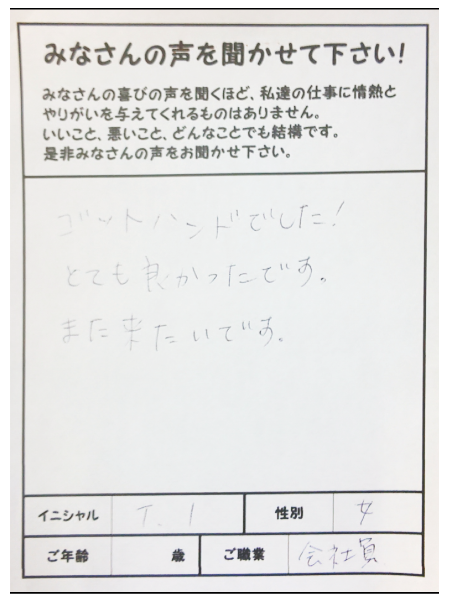 みなさんの声を聞かせて下さい!
みなさんの喜びの声を聞くほど、私達の仕事に情熱と
やりがいを与えてくれるものはありません。
いいこと、悪いこと、どんなことでも結構です。
是非みなさんの声をお聞かせ下さい。
ゴットハンドでした!
とても良かったです。
また来たいです。
イニシャル T. I 性別 女
ご年齢 歳 ご職業 会社員